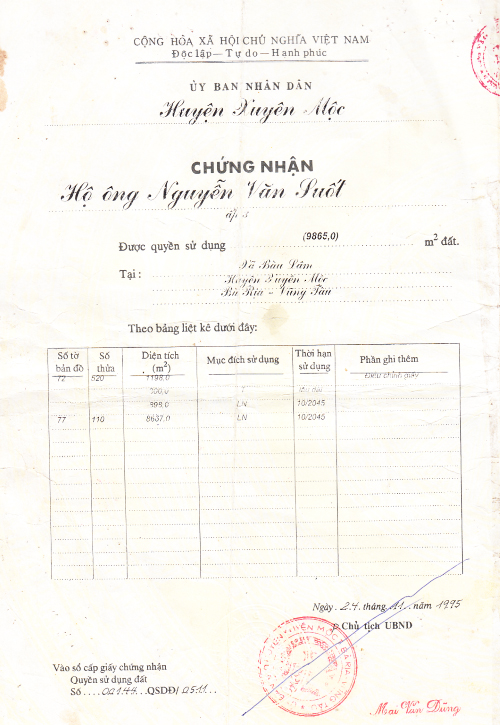 CỘNG HÒA XÃ HỘI CHỦ NGHĨA VIỆT NAM
Độc lập — Tự do — Hạnh phúc
ỦY BAN NHÂN DÂN
Huyện Xuyên Mộc
CHỨNG NHẬN
Hộ ông Nguyễn Văn Suốt
ấp 3
Được quyền sử dụng (9865,0) m² đất.
Tại : Xã Bàu Lâm
Huyện Xuyên Mộc
Bà Rịa - Vũng Tàu
Theo bảng liệt kê dưới đây:
Số tờ bản đồ Số thửa Diện tích (m²) Mục đích sử dụng Thời hạn sử dụng Phần ghi thêm
72 520 1198,0 Điều chỉnh giấy
300,0 T lâu dài
898,0 LN 10/2045
77 110 8637,0 LN 10/2045
Ngày . 24 tháng 11 năm 1995
Chủ tịch UBND
Vào sổ cấp giấy chứng nhận
Quyền sử dụng đất
Số .... 00144 .. QSDĐ/ 0511 ...
Mai Văn Dũng